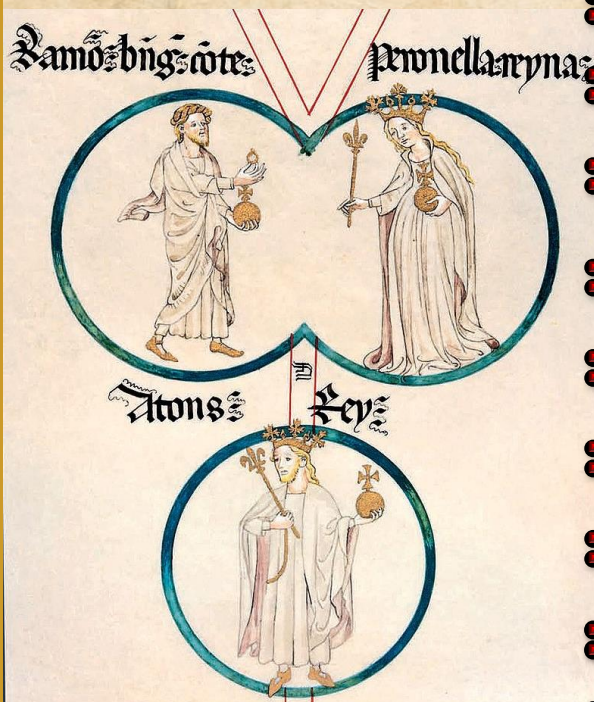 Ramō bñg cōte
Peronella reyna
D
Afons Rey